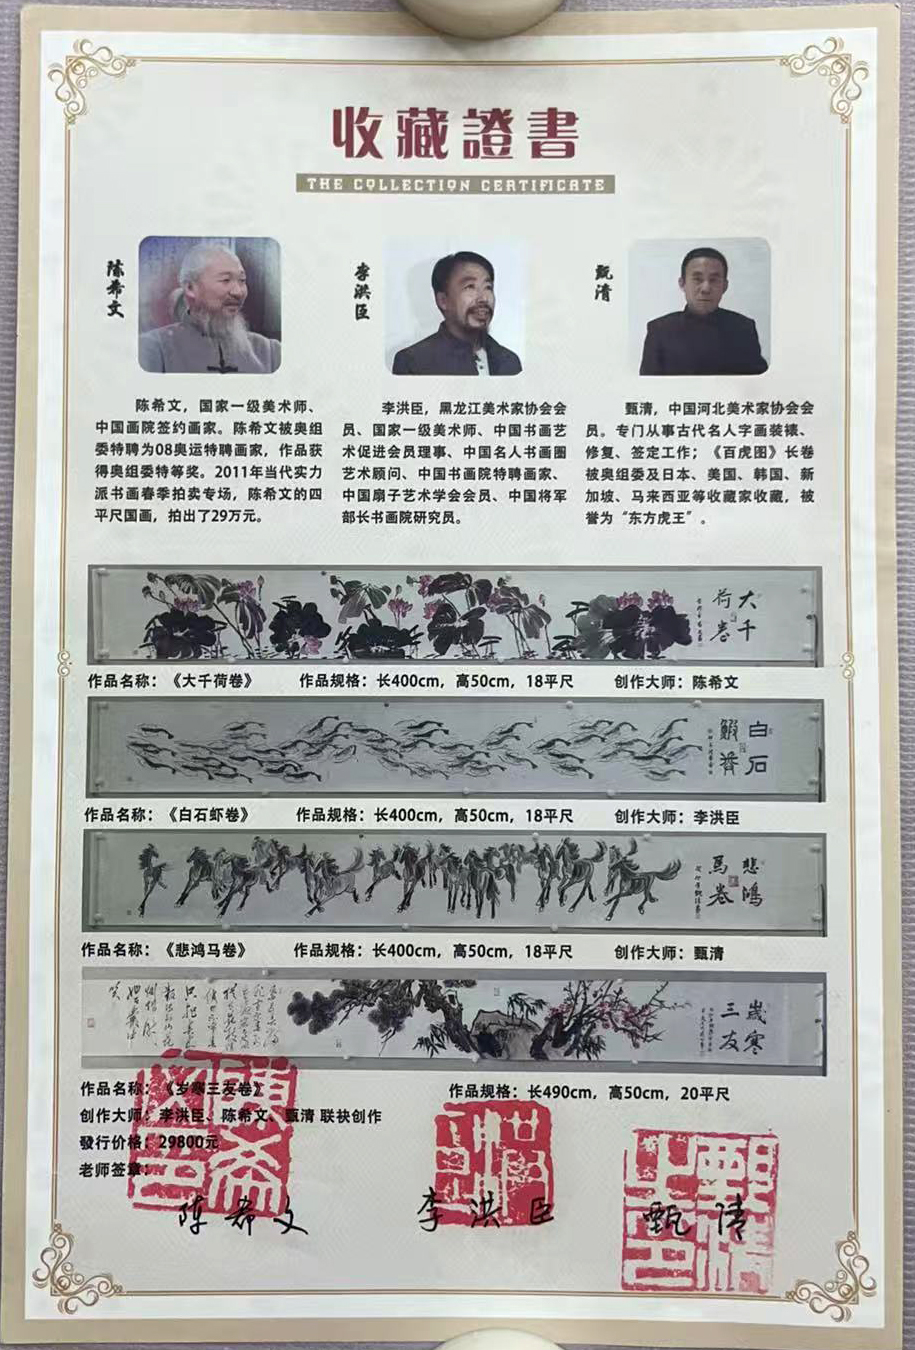 收藏證書
THE COLLECTION CERTIFICATE
陈希文
李洪臣
甄清
陈希文，国家一级美术师、
中国画院签约画家。陈希文被奥组
委特聘为08奥运特聘画家，作品获
得奥组委特等奖。2011年当代实力
派书画春季拍卖专场，陈希文的四
平尺国画，拍出了29万元。
李洪臣，黑龙江美术家协会会
员、国家一级美术师、中国书画艺
术促进会员理事、中国名人书画圈
艺术顾问、中国书画院特聘画家、
中国扇子艺术学会会员、中国将军
部长书画院研究员。
甄清，中国河北美术家协会会
员。专门从事古代名人字画装裱、
修复、签定工作；《百虎图》长卷
被奥组委及日本、美国、韩国、新
加坡、马来西亚等收藏家收藏，被
誉为“东方虎王”。
大千
荷卷
作品名称：《大千荷卷》 作品规格：长400cm，高50cm，18平尺 创作大师：陈希文
白石
作品名称：《白石虾卷》 作品规格：长400cm，高50cm，18平尺 创作大师：李洪臣
悲鸿
馬卷
作品名称：《悲鸿马卷》 作品规格：长400cm，高50cm，18平尺 创作大师：甄清
歲寒
三友
作品名称：《岁寒三友卷》 作品规格：长490cm，高50cm，20平尺
创作大师：李洪臣、陈希文、甄清 联袂创作
發行价格：29800元
老师签章：
陈希文
李洪臣
甄清